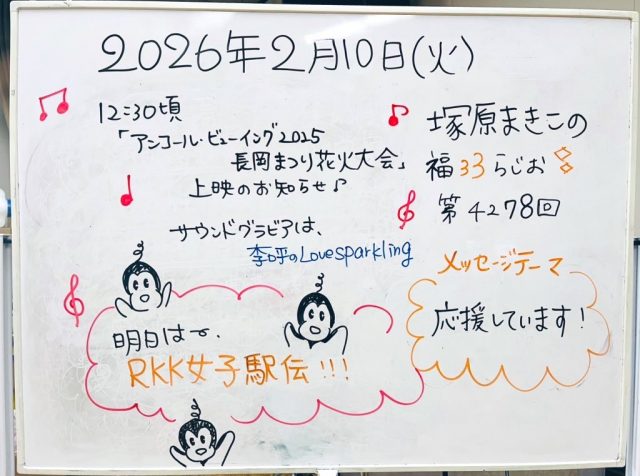 2026年2月10日(火)
12:30頃
「アンコール・ビューイング2025
長岡まつり花火大会」
上映のお知らせ♪
サウンドグラビアは、
李呼のLovesparkling
塚原まきこの
福ろろらじお
第4278回
メッセージテーマ
応援しています!
明日は〜、
RKK女子駅伝!!!